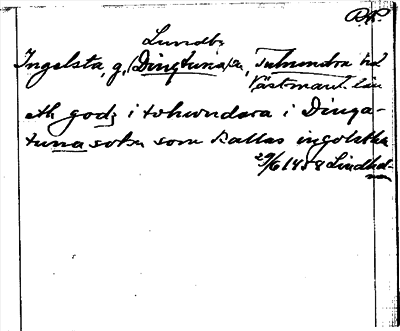 Lundby
Ingelsta, g, (Dingtuna) sn, Tuhundra hd
Västmanl. län
eth godz i tohwndara i Dinga-
tuna sokn som kallas ingolstha
29/6 1458 Lindhol-